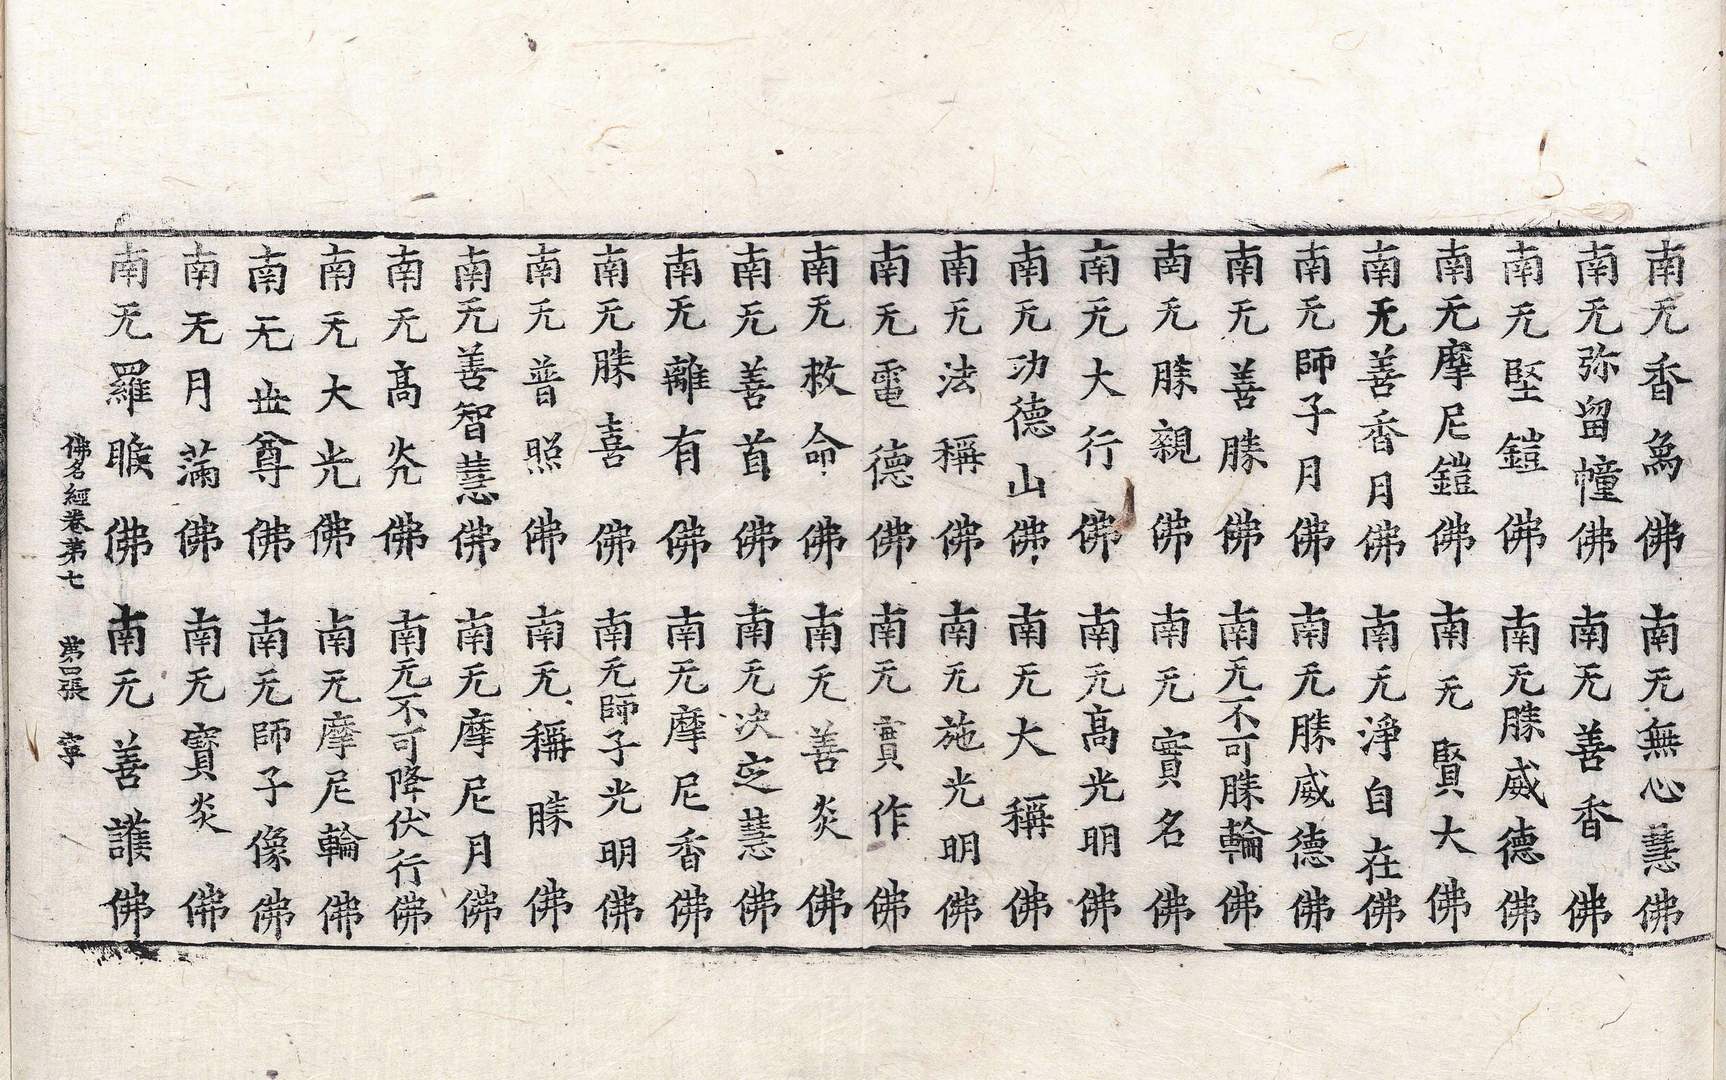 南无香爲佛 南无無心慧佛
南无弥留幢佛 南无善香佛
南无堅鎧佛 南无勝威德佛
南无摩尼鎧佛 南无賢大佛
南无善香月佛 南无淨自在佛
南无師子月佛 南无勝威德佛
南无善勝佛 南无不可勝輪佛
南无勝親佛 南无寶名佛
南无大行佛 南无高光明佛
南无功德山佛 南无大稱佛
南无法稱佛 南无施光明佛
南无電德佛 南无寶作佛
南无救命佛 南无善炎佛
南无善首佛 南无决定慧佛
南无離有佛 南无摩尼香佛
南无勝喜佛 南无師子光明佛
南无普照佛 南无稱勝佛
南无善智慧佛 南无摩尼月佛
南无高炎佛 南无不可降伏行佛
南无大光佛 南无摩尼輪佛
南无世尊佛 南无師子像佛
南无月滿佛 南无寶炎佛
南无羅睺佛 南无善護佛
佛名經卷第七 第四張 寧